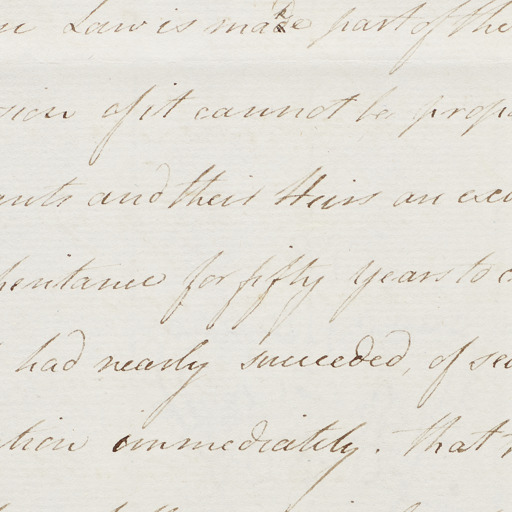 Law is made part of the
sion of it cannot be prop
ents and their Heirs an exc
heritance for fifty years to c
had nearly succeeded, of se
tion immediately. That